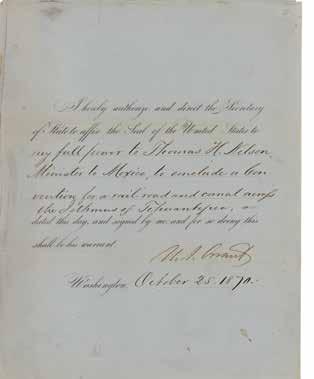 I hereby authorize and direct the Secretary
of State to affix the Seal of the United States to
my full power to Thomas H. Nelson,
Minister to Mexico, to conclude a Con
vention for a rail road and canal across
the Isthmus of Tehuantepec,
dated this day, and signed by me and for so doing this
shall be his warrant.
U.S. Grant
Washington, October 25. 1870.